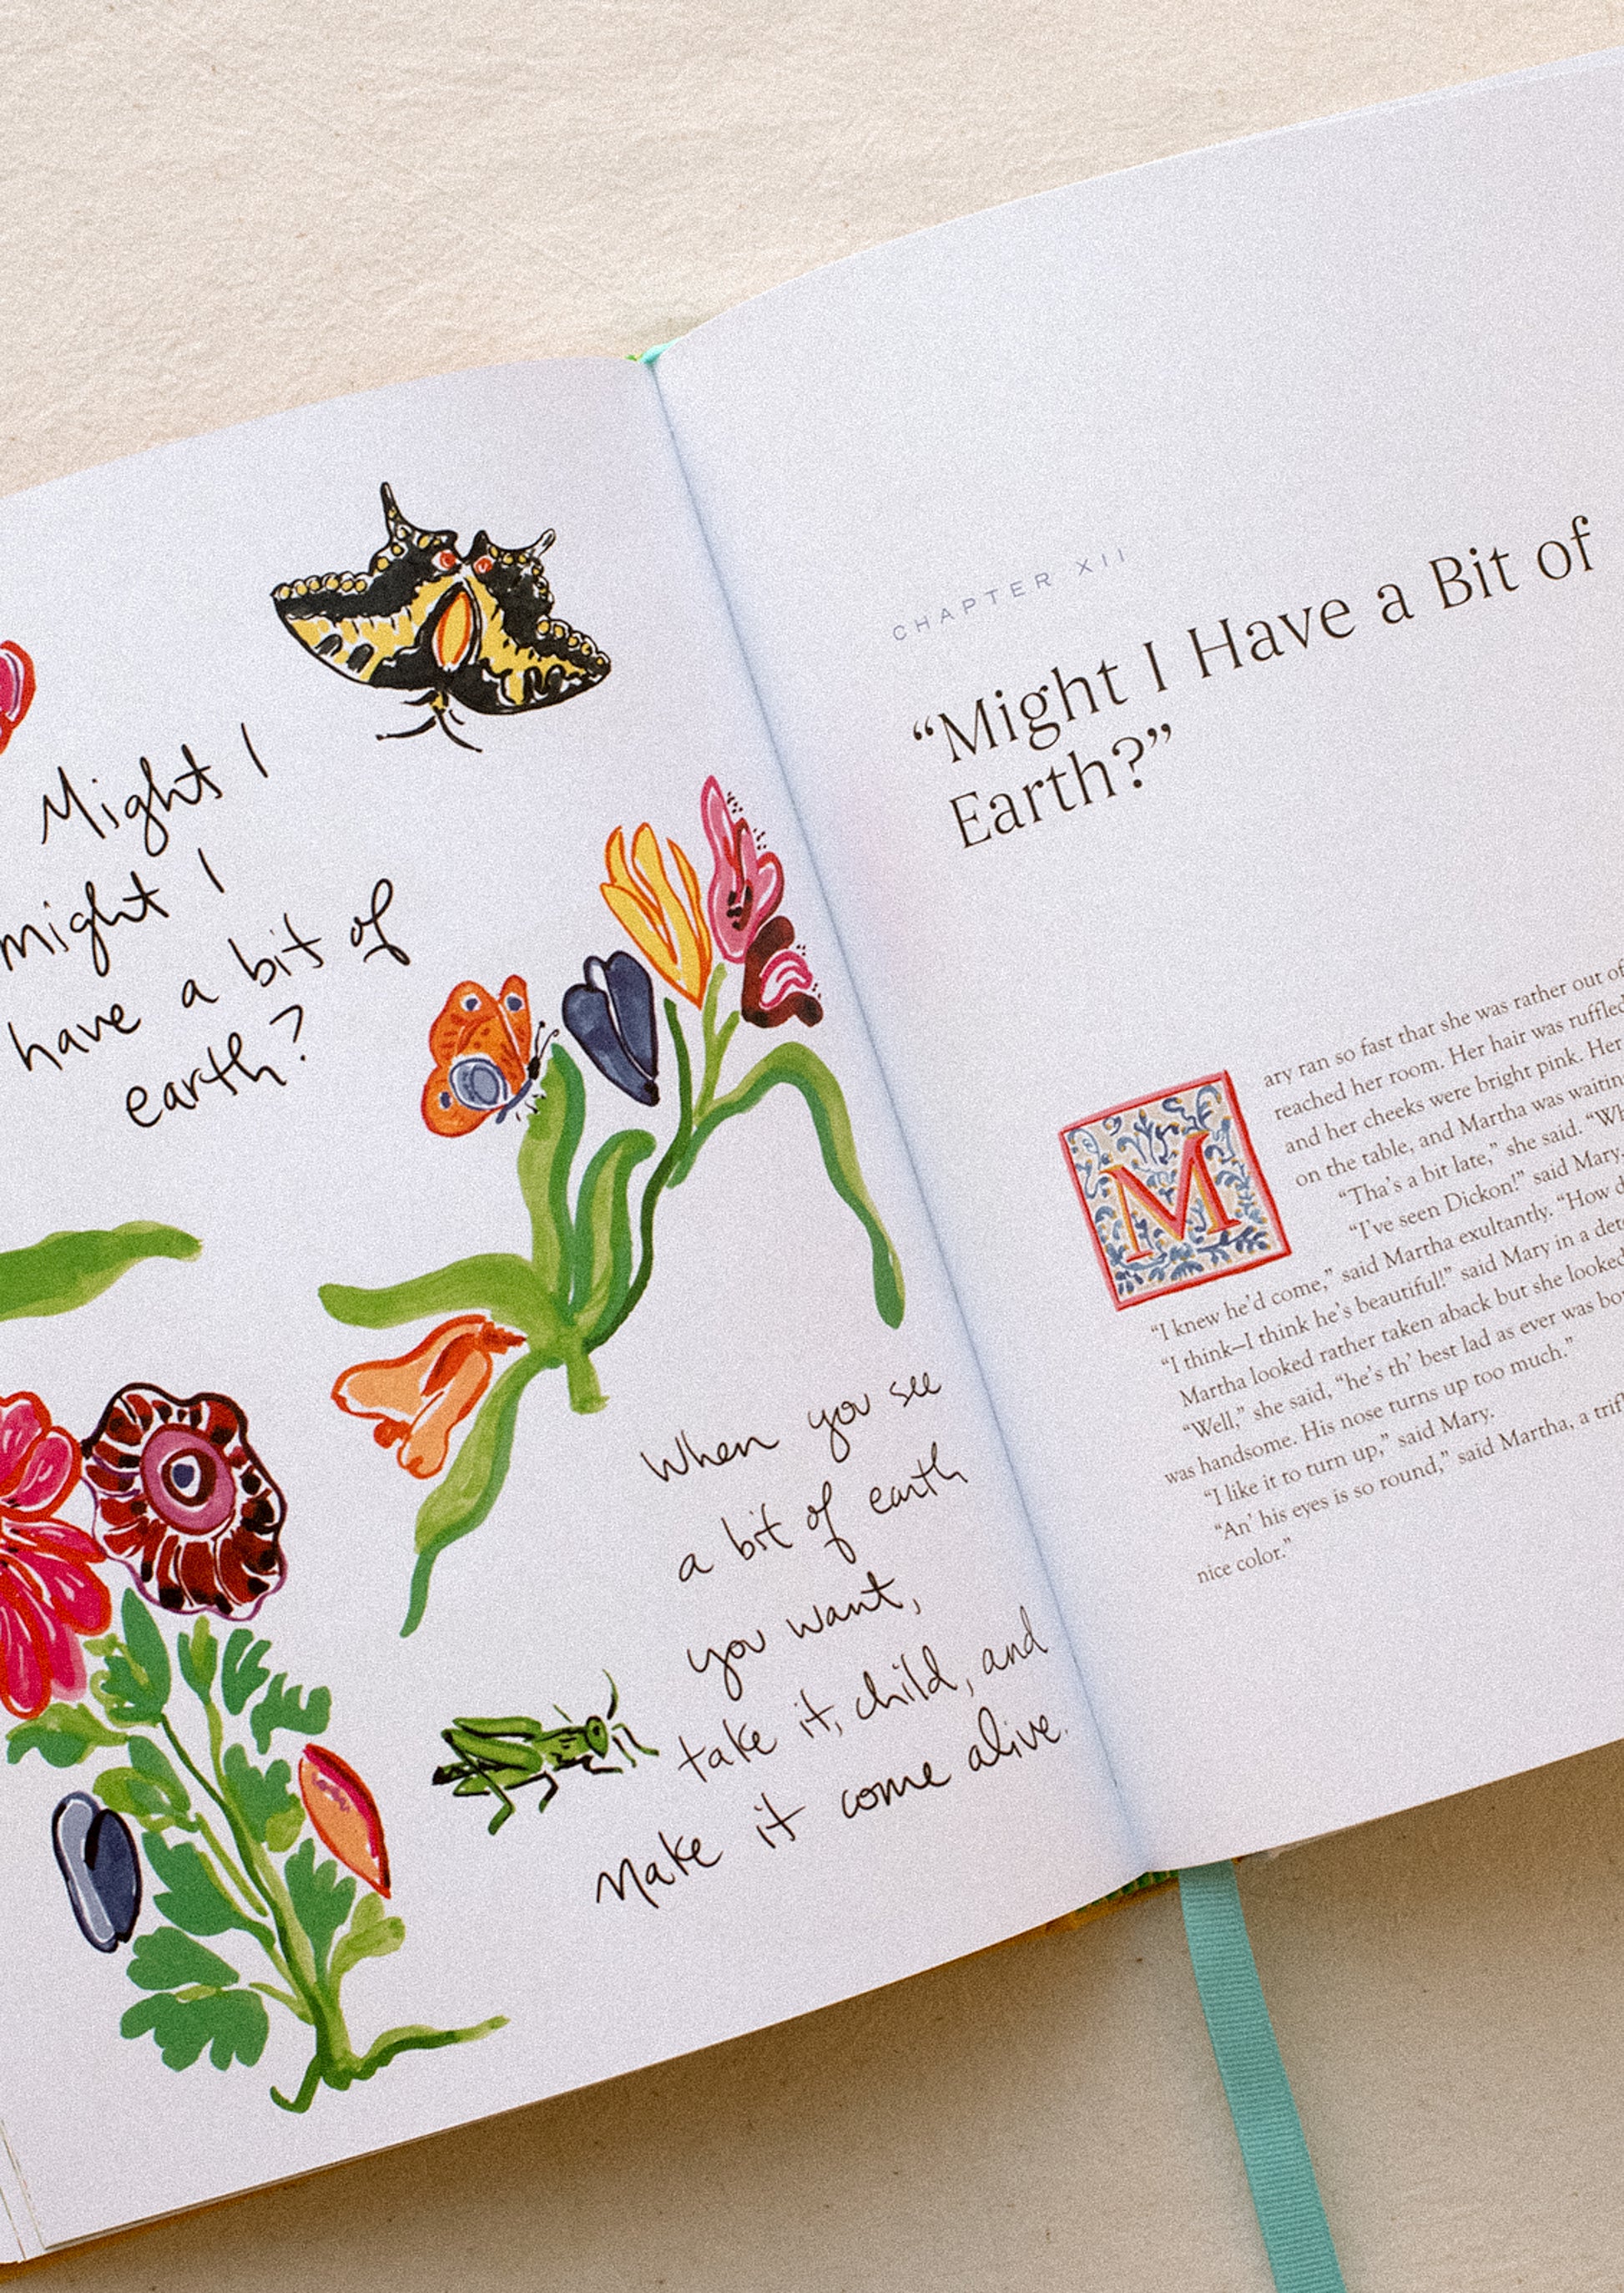 Might I
might I
have a bit of
earth?
When you see
a bit of earth
you want,
take it, child, and
Make it come alive.
CHAPTER XII
“Might I Have a Bit of
Earth?”
M
ary ran so fast that she was rather out of
reached her room. Her hair was ruffled
and her cheeks were bright pink. Her
on the table, and Martha was waiting
“Tha’s a bit late,” she said. “Wh
“I’ve seen Dickon!” said Mary.
“I knew he’d come,” said Martha exultantly. “How d
“I think—I think he’s beautiful!” said Mary in a det
Martha looked rather taken aback but she looked
“Well,” she said, “he’s th’ best lad as ever was bor
was handsome. His nose turns up too much.”
“I like it to turn up,” said Mary.
“An’ his eyes is so round,” said Martha, a trif
nice color.”